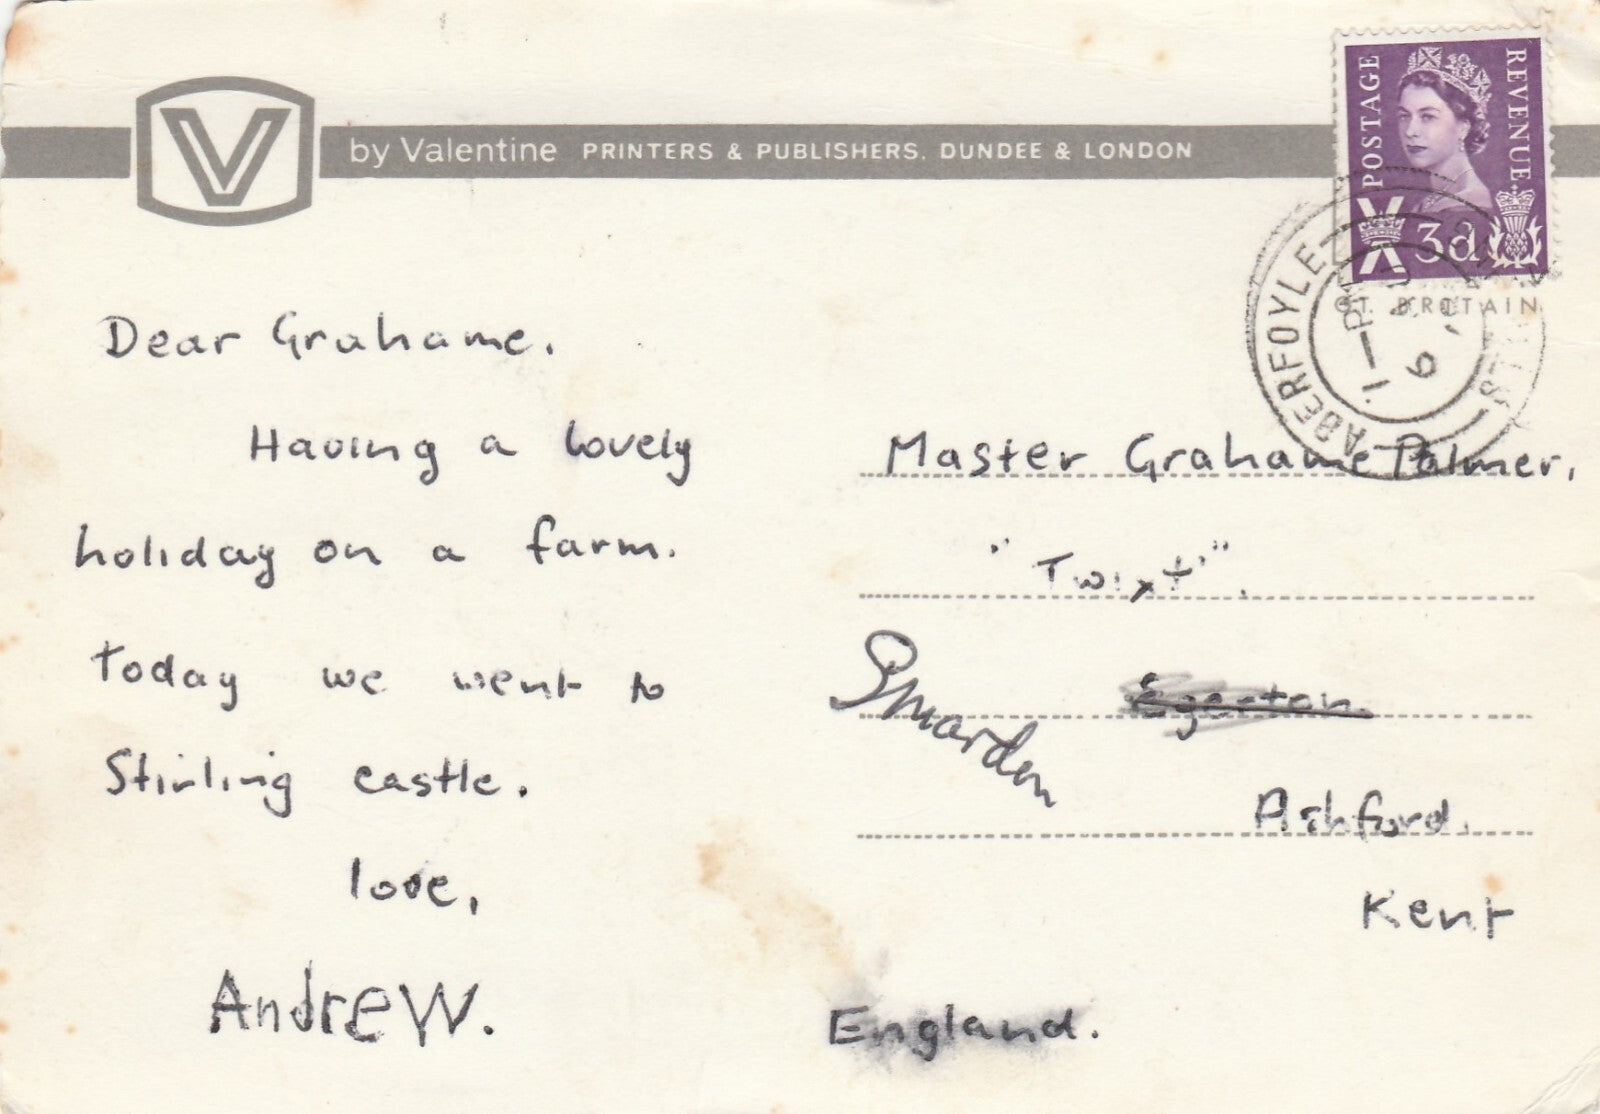 V
by Valentine PRINTERS & PUBLISHERS, DUNDEE & LONDON
POSTAGE
REVENUE
3d
GT. BRITAIN
ABERFOYLE
1-PM
Dear Grahame.
Having a lovely
holiday on a farm.
Today we went to
Stirling castle.
love,
AndreW.
Master Grahame Palmer,
"Twixt".
Egerton.
Smarden
Ashford.
Kent
England.